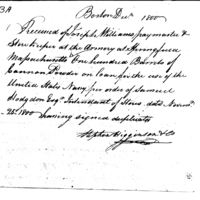 3A
Boston Decr 1800
Received of Joseph Williams paymaster &
Storekeeper at the Armory at Springfield
Massachusetts One hundred Barrels of
Cannon Powder on loan for the use of the
United States Navy, per order of Samuel
Hodgdon Esqr Intendant of Stores dated Novem
25th 1800 having signed duplicates
Stephen Higginson & Co